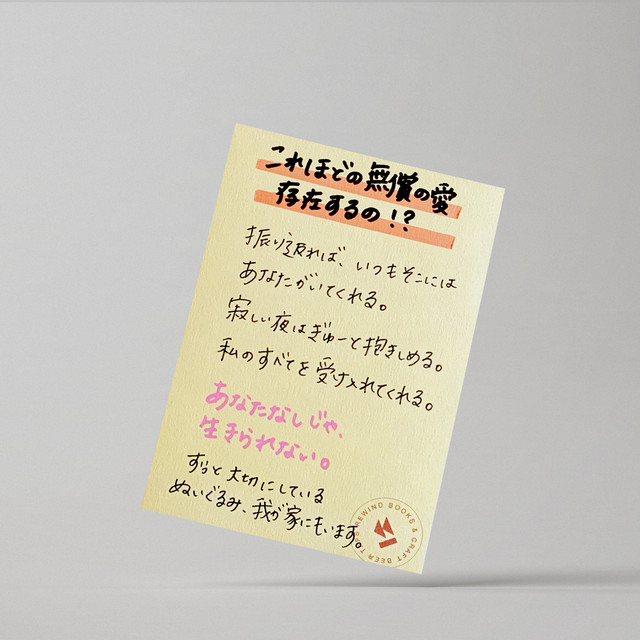 これほどの無償の愛
存在するの!?
振り返れば、いつもそこには
あなたがいてくれる。
寂しい夜はぎゅーと抱きしめる。
私のすべてを受け入れてくれる。
あなたなしじゃ、
生きられない。
ずっと大切にしている
ぬいぐるみ、我が家にもいます。
REWIND BOOKS & CRAFT BEER